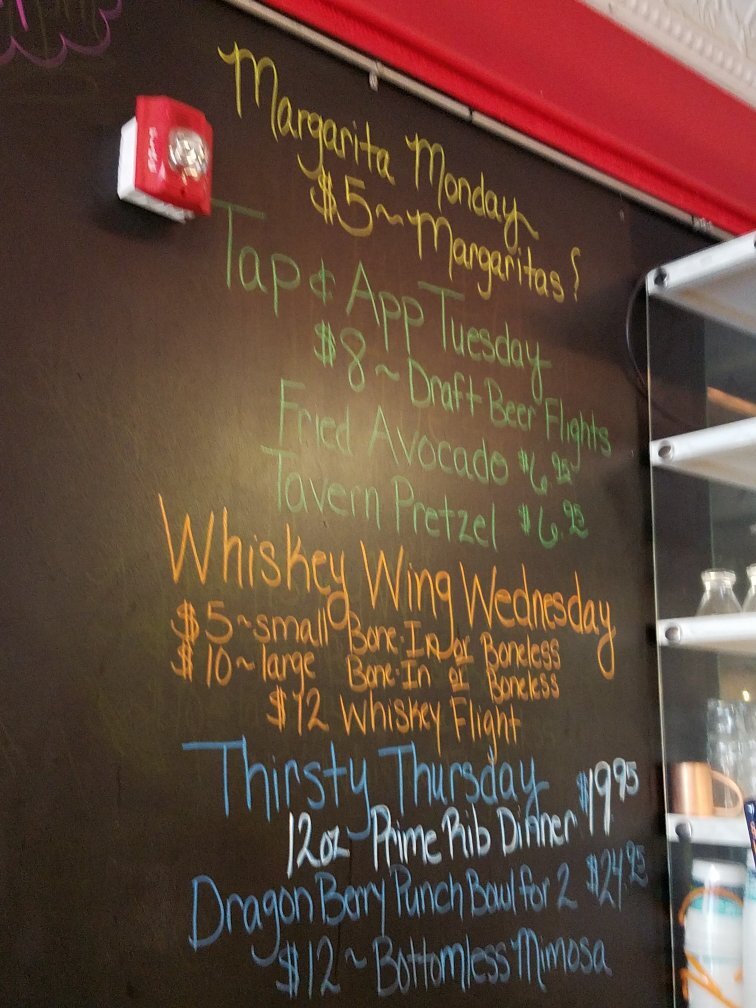 Margarita Monday
$5~Margaritas!
Tap & App Tuesday
$8~Draft Beer Flights
Fried Avocado $6.95
Tavern Pretzel $6.95
Whiskey Wing Wednesday
$5~small Bone-In or Boneless
$10~large Bone-In or Boneless
$12 Whiskey Flight
Thirsty Thursday
12oz~Prime Rib Dinner $19.95
Dragon Berry Punch Bowl for 2 $24.95
$12~Bottomless Mimosa